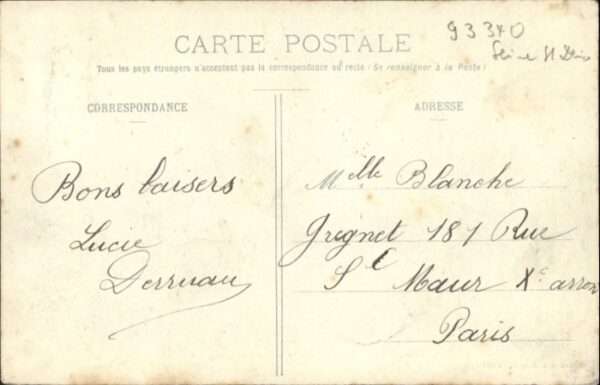 93340
Seine St Denis
CARTE POSTALE
Tous les pays étrangers n'acceptent pas la correspondance au recto (Se renseigner à la Poste)
CORRESPONDANCE
Bons baisers
Lucie
Derruau
ADRESSE
Melle Blanche
Gregnet 181 Rue
St Maur Xe arron
Paris